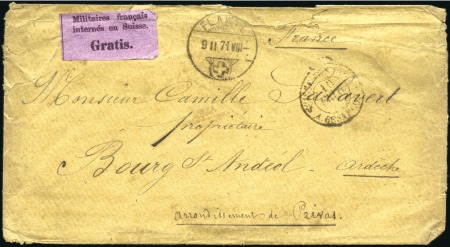 Militaires français
internés en Suisse.
Gratis.
9 II 71 VIII
France
Monsieur Camille
propriétaire
Bourg St Andéol
Ardèche
arrondissement de Privas.